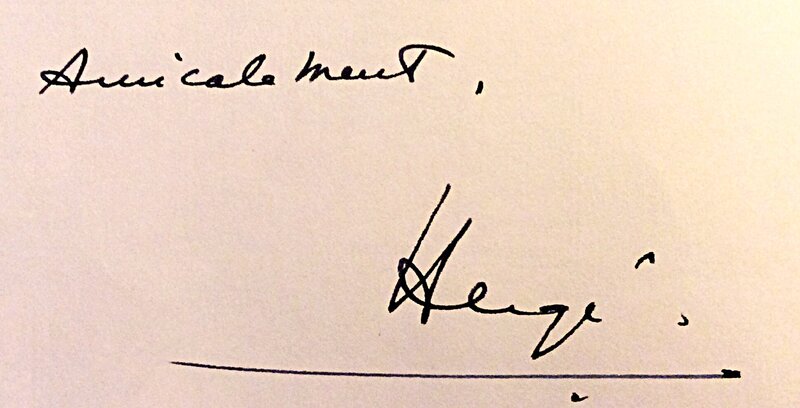 Amicalement,
Hergé.